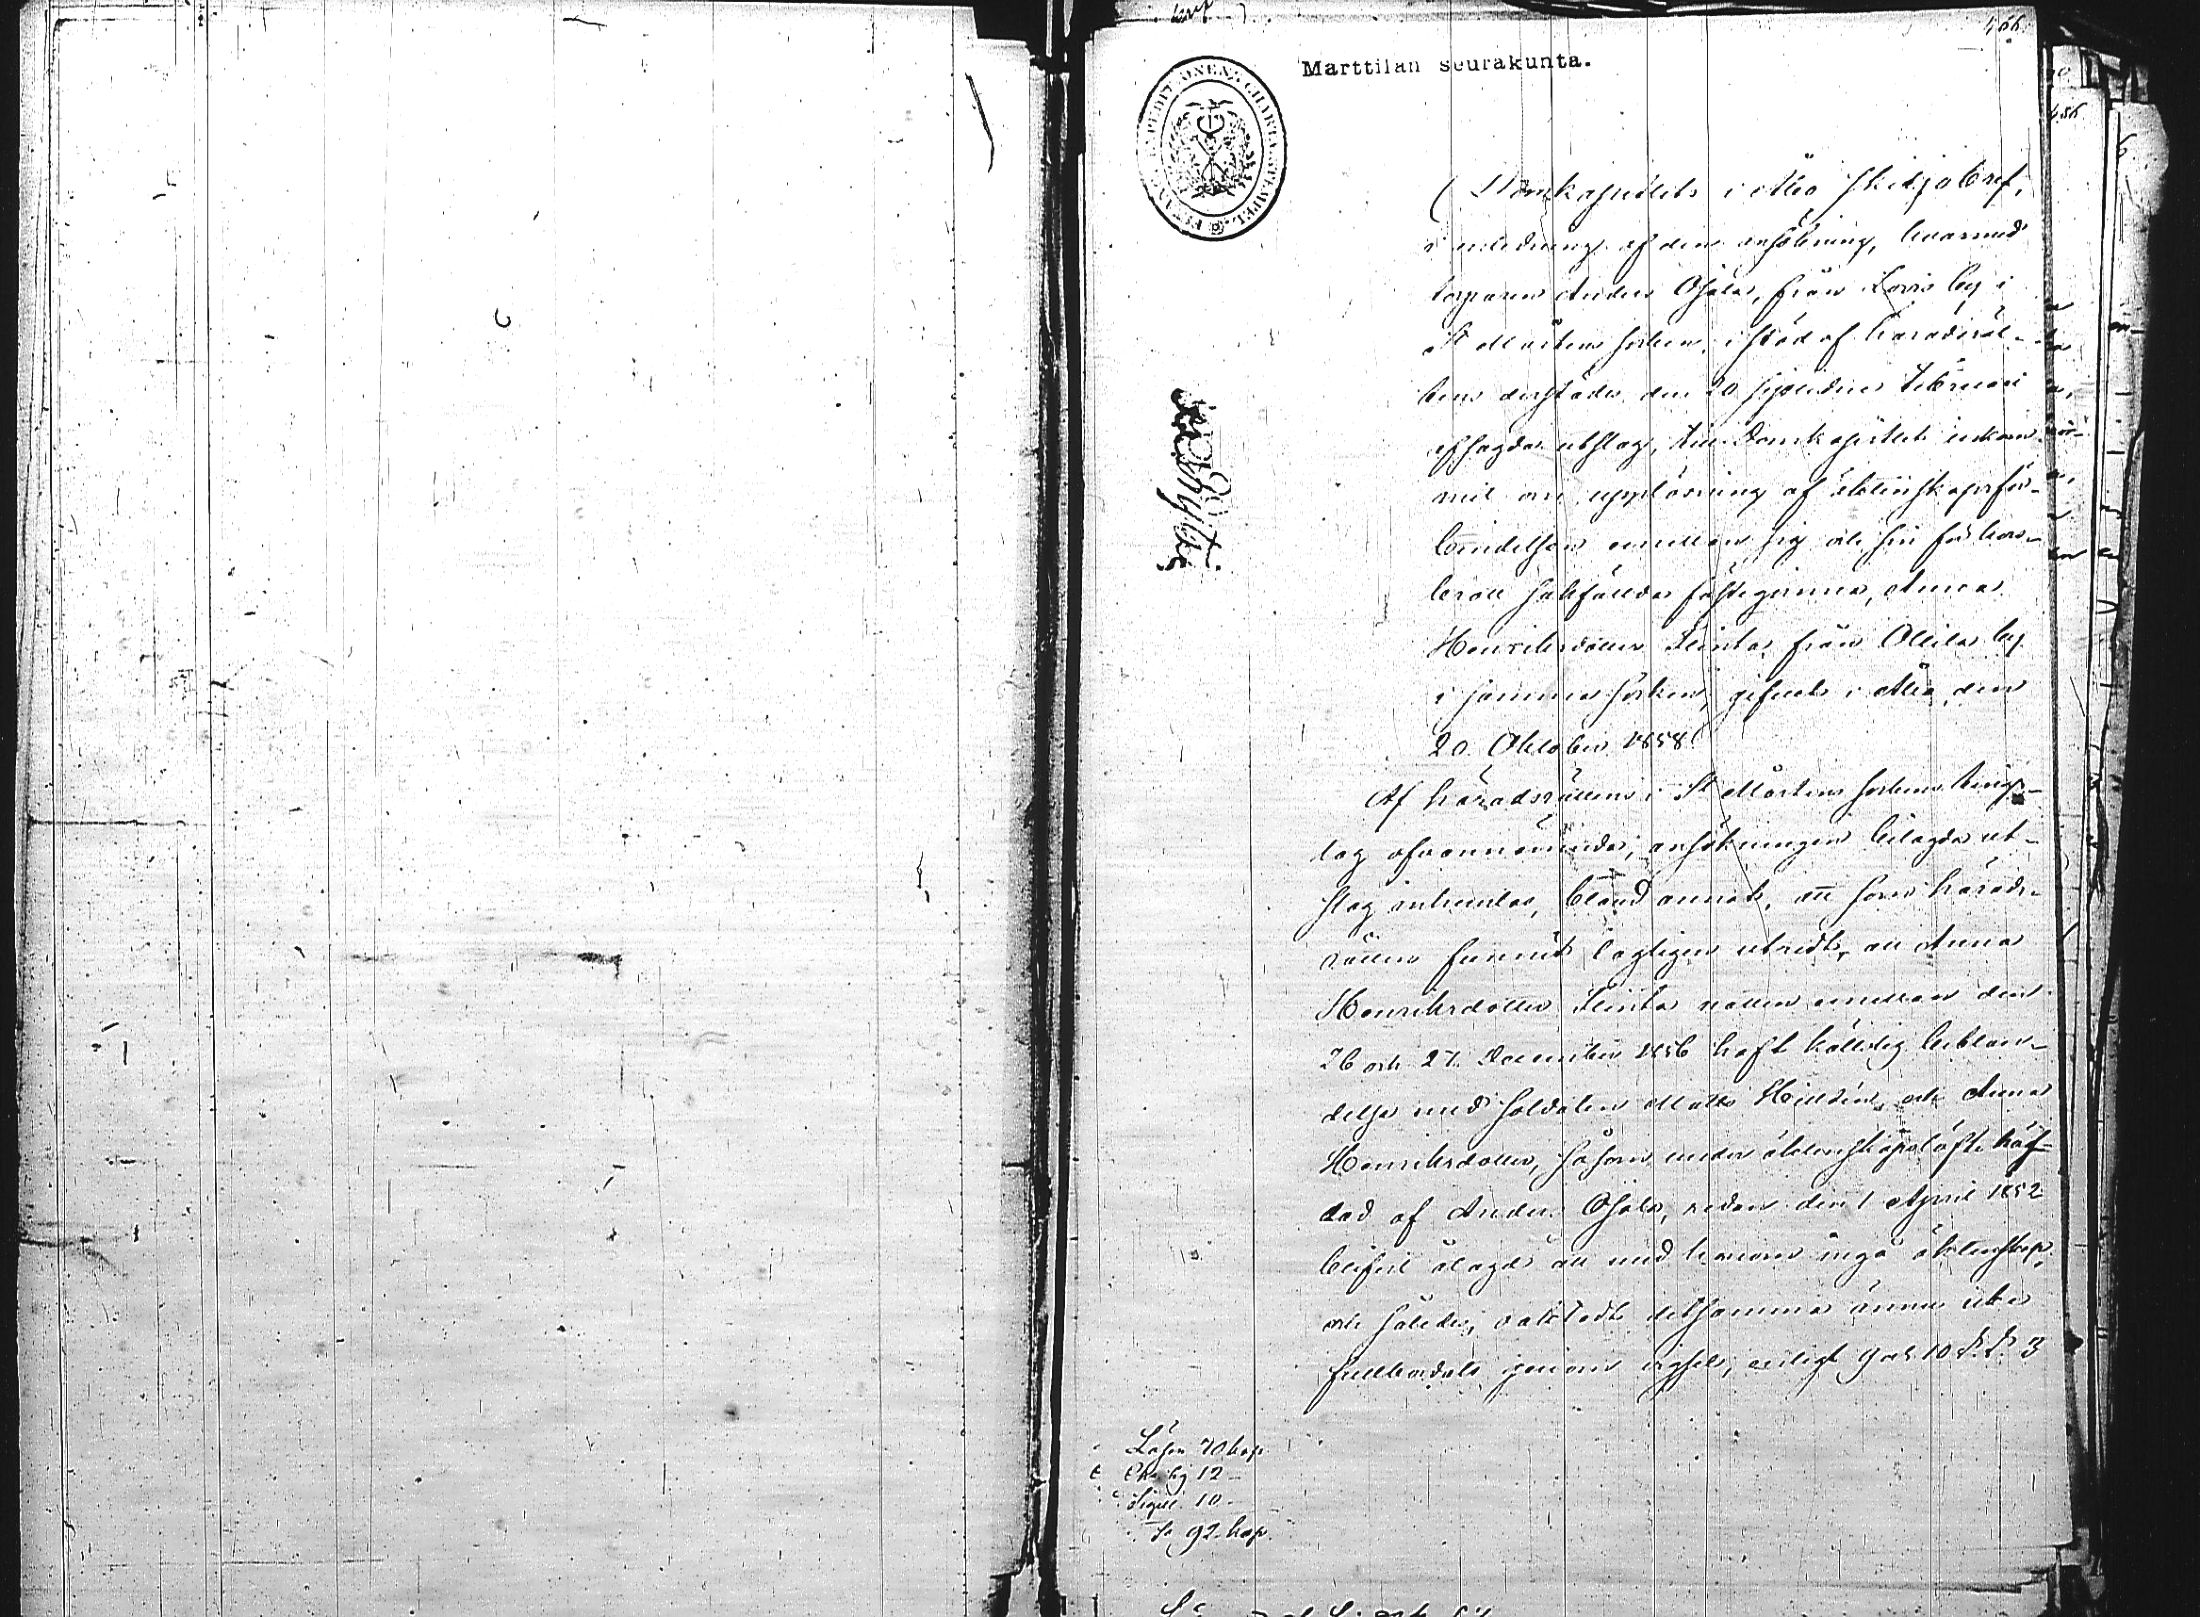 466
Marttilan seurakunta.
FINANS EXPEDITIONENS CHARTA STÆMPEL
Domkapitlets i Åbo skiljobref,
i anledning af den ansökning, hvarmed
torparen Anders Ojala, från Lovis by i
St Mårtens socken, i stöd af häradsrät-
tens derstädes den 20 sistlidne Februari
afsagda utslag, hos Domkapitlet inkom-
mit om upplösning af äktenskapsför-
bindelsen emellan sig och sin för hor-
brott sakfällda fästeqvinna, Anna
Henriksdotter Flinta från Ollila by
i samma socken; gifvet i Åbo den
20 Oktober 1858.
Af häradsrättens i St Mårtens sockens ting-
lag ofvannämnda, ansökningen bilagda ut-
slag inhemtas, bland annat, att som härads-
rätten funnit lagligen utredt, att Anna
Henriksdotter Flinta natten emellan den
26 och 27 December 1856 haft köttslig beblan-
delse med soldaten Matts Hilldén, och Anna
Henriksdotter, såsom under äktenskapslöfte häf-
dad af Anders Ojala, redan den 1 April 1852
blifvit ålagd att med honom ingå äktenskap,
och således, oaktadt detsamma ännu icke
fullbordats genom vigsel, enligt 9 och 10 §§ 3
Lösen 70 kop
12
Sigill 10
S:a 92 kop.